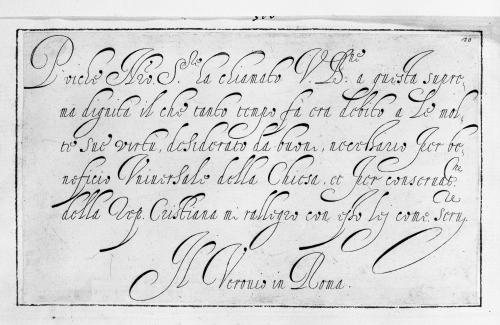 Poiche Nro. S.re la chiamato V. B.ne a questa supre,
ma dignita il che tanto tempo fà era debito a le mol,
te sue virtu, desiderato da buoni, necessario per be,
neficio Vniuersale della Chiesa, et per conseruat.ne
della Rep. Cristiana mi rallegro con esso lej come seru.re
Il Verouio in Roma.